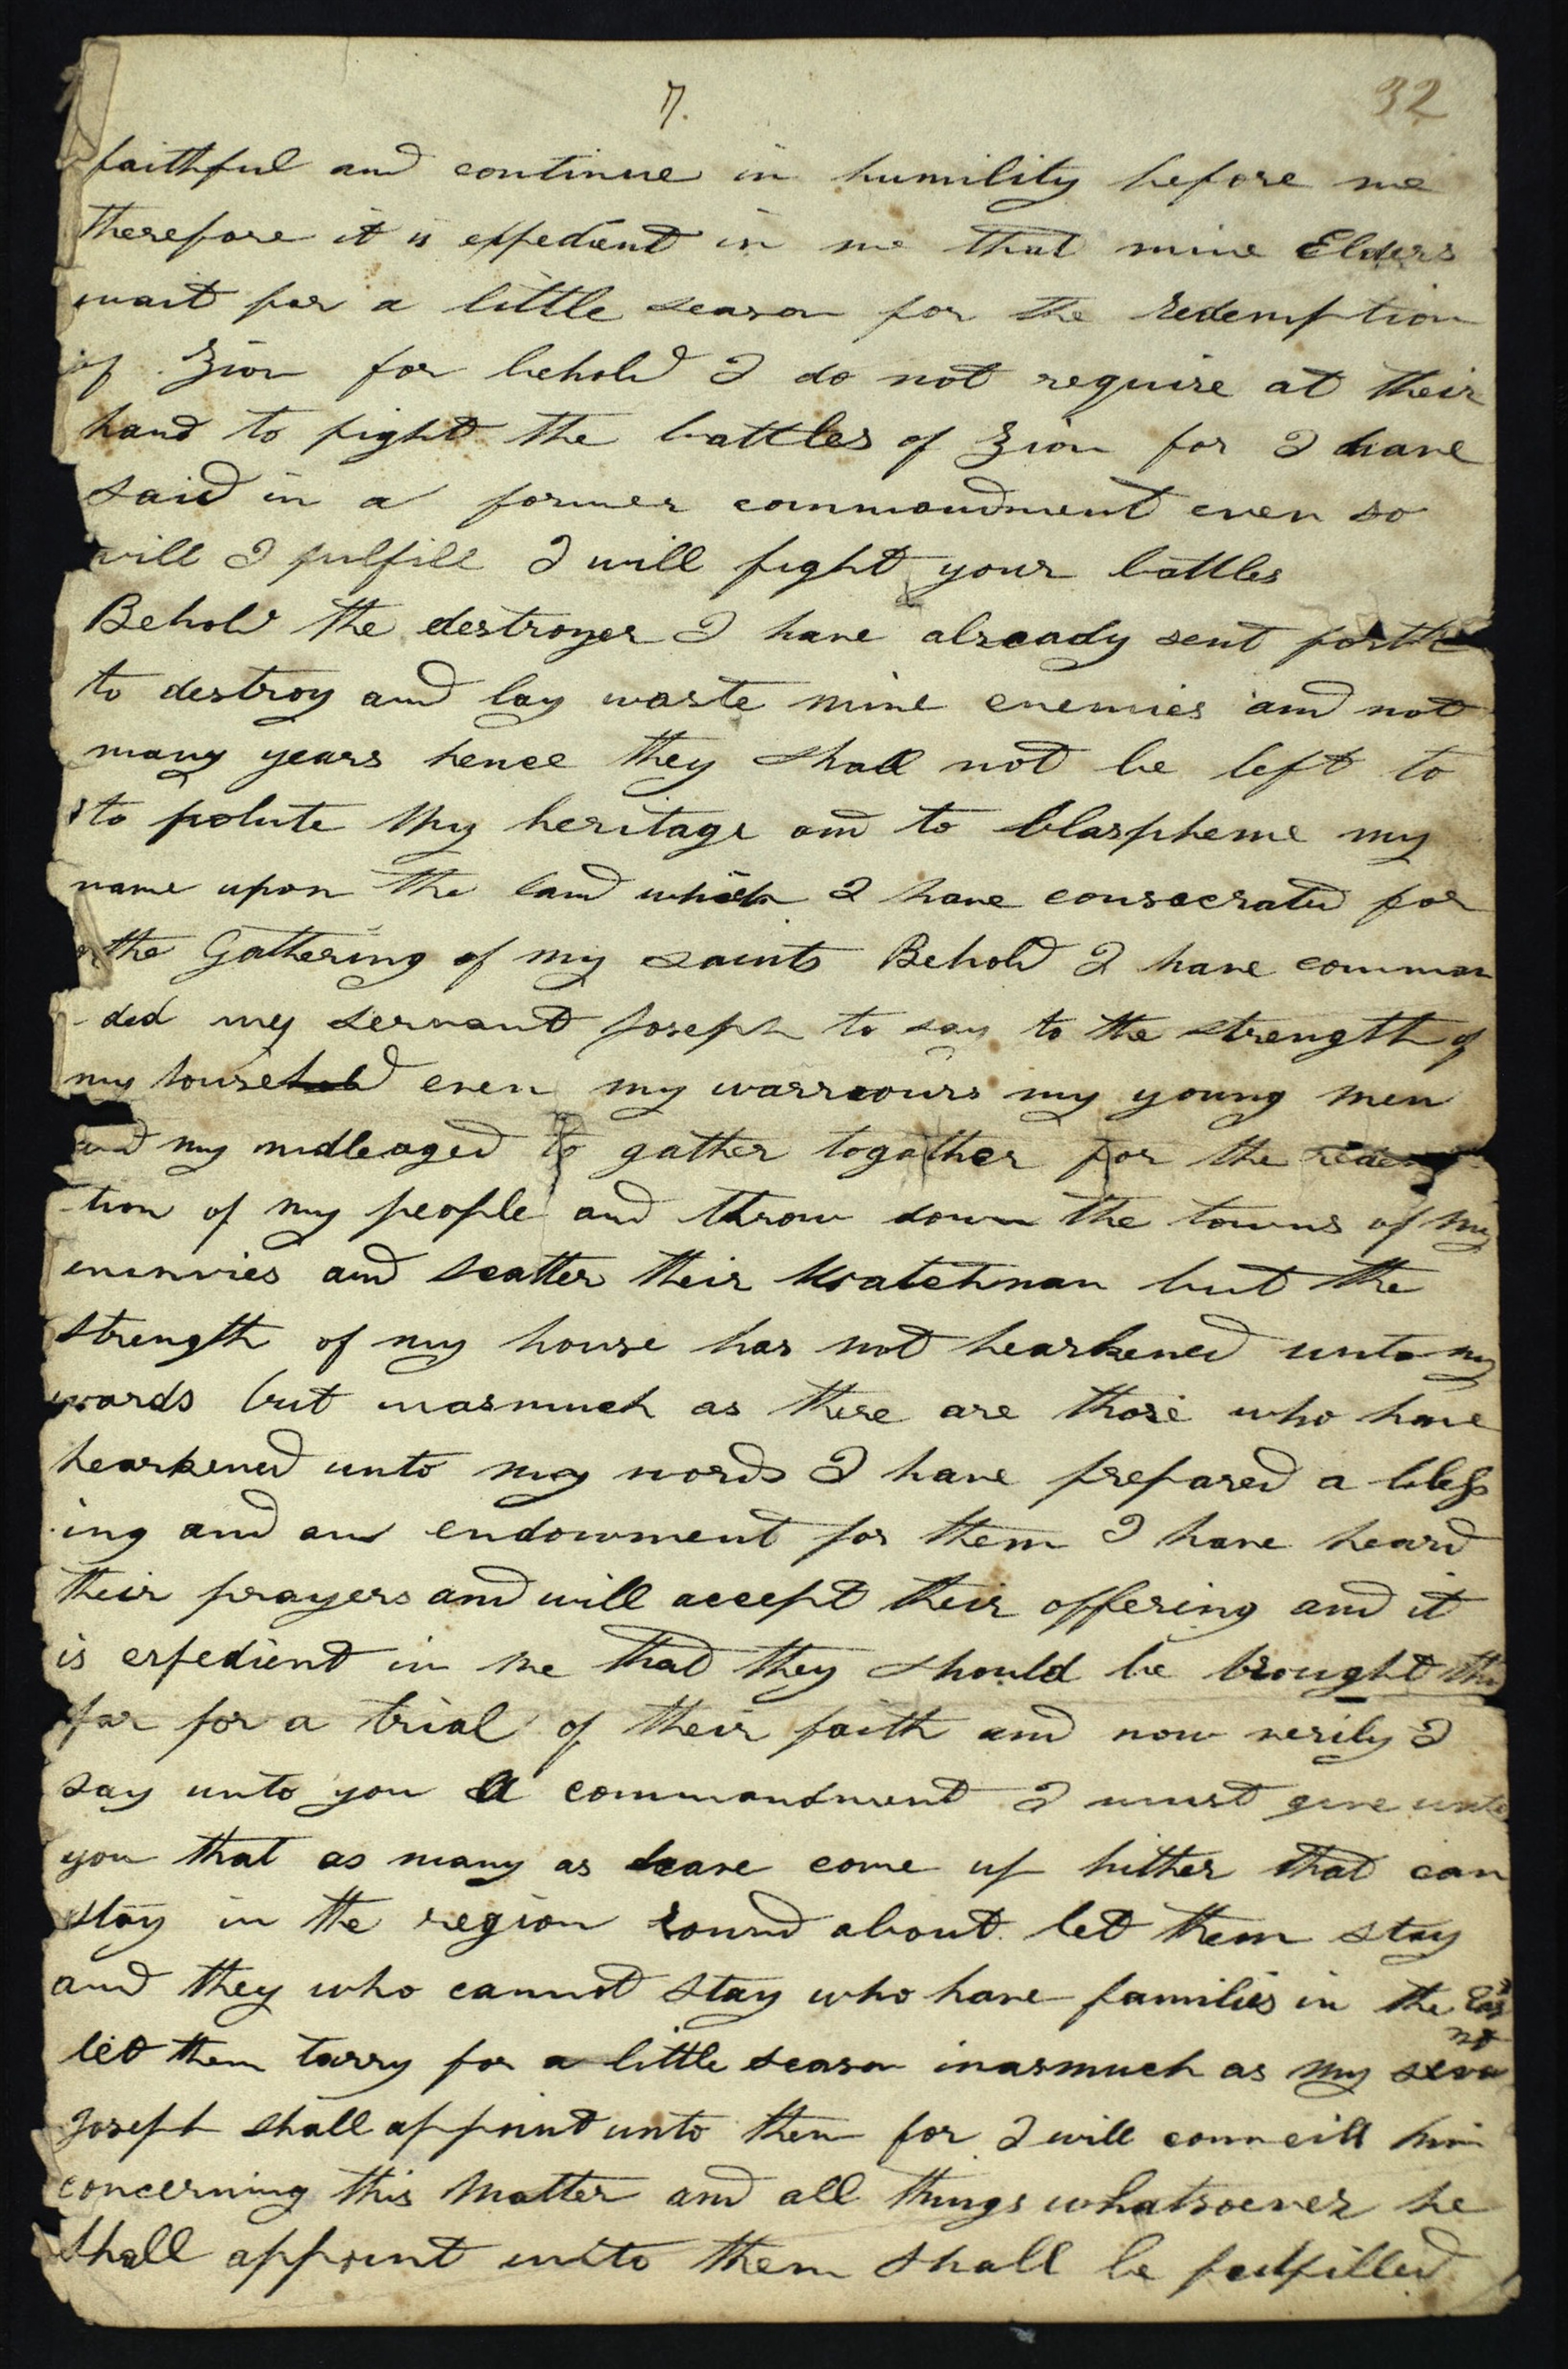 7. 32
faithful and continue in humility before me
therefore it is expedient in me that mine Elders
wait for a little season for the redemption
of Zion for behold I do not require at their
hand to fight the battles of Zion for I have
said in a former commandment even so
will I fulfill I will fight your battles
Behold the destroyer I have already sent forth
to destroy and lay waste mine enemies and not
many years hence they shall not be left to
to polute my heritage and to blaspheme my
name upon the land which I have consecrated for
the Gathering of my saints Behold I have comman
-ded my servant Joseph to say to the strength of
my household even my warriours my young men
and my midleaged to gather together for the redemp
-tion of my people and throw down the towns of my
enimies and scatter their Watchman but the
strength of my house has not hearkened unto my
words but inasmuch as there are those who have
hearkened unto my words I have prepared a bless
ing and an endowment for them I have heard
their prayers and will accept their offering and it
is expedient in me that they should be brought thus
far for a trial of their faith and now verily I
say unto you A commandment I must give unto
you that as many as have come up hither that can
stay in the region round about let them stay
and they who cannot stay who have families in the East
let them tarry for a little season inasmuch as my servant
Joseph shall appoint unto them for I will councill him
concerning this Matter and all things whatsoever he
shall appoint unto them shall be fulfilled